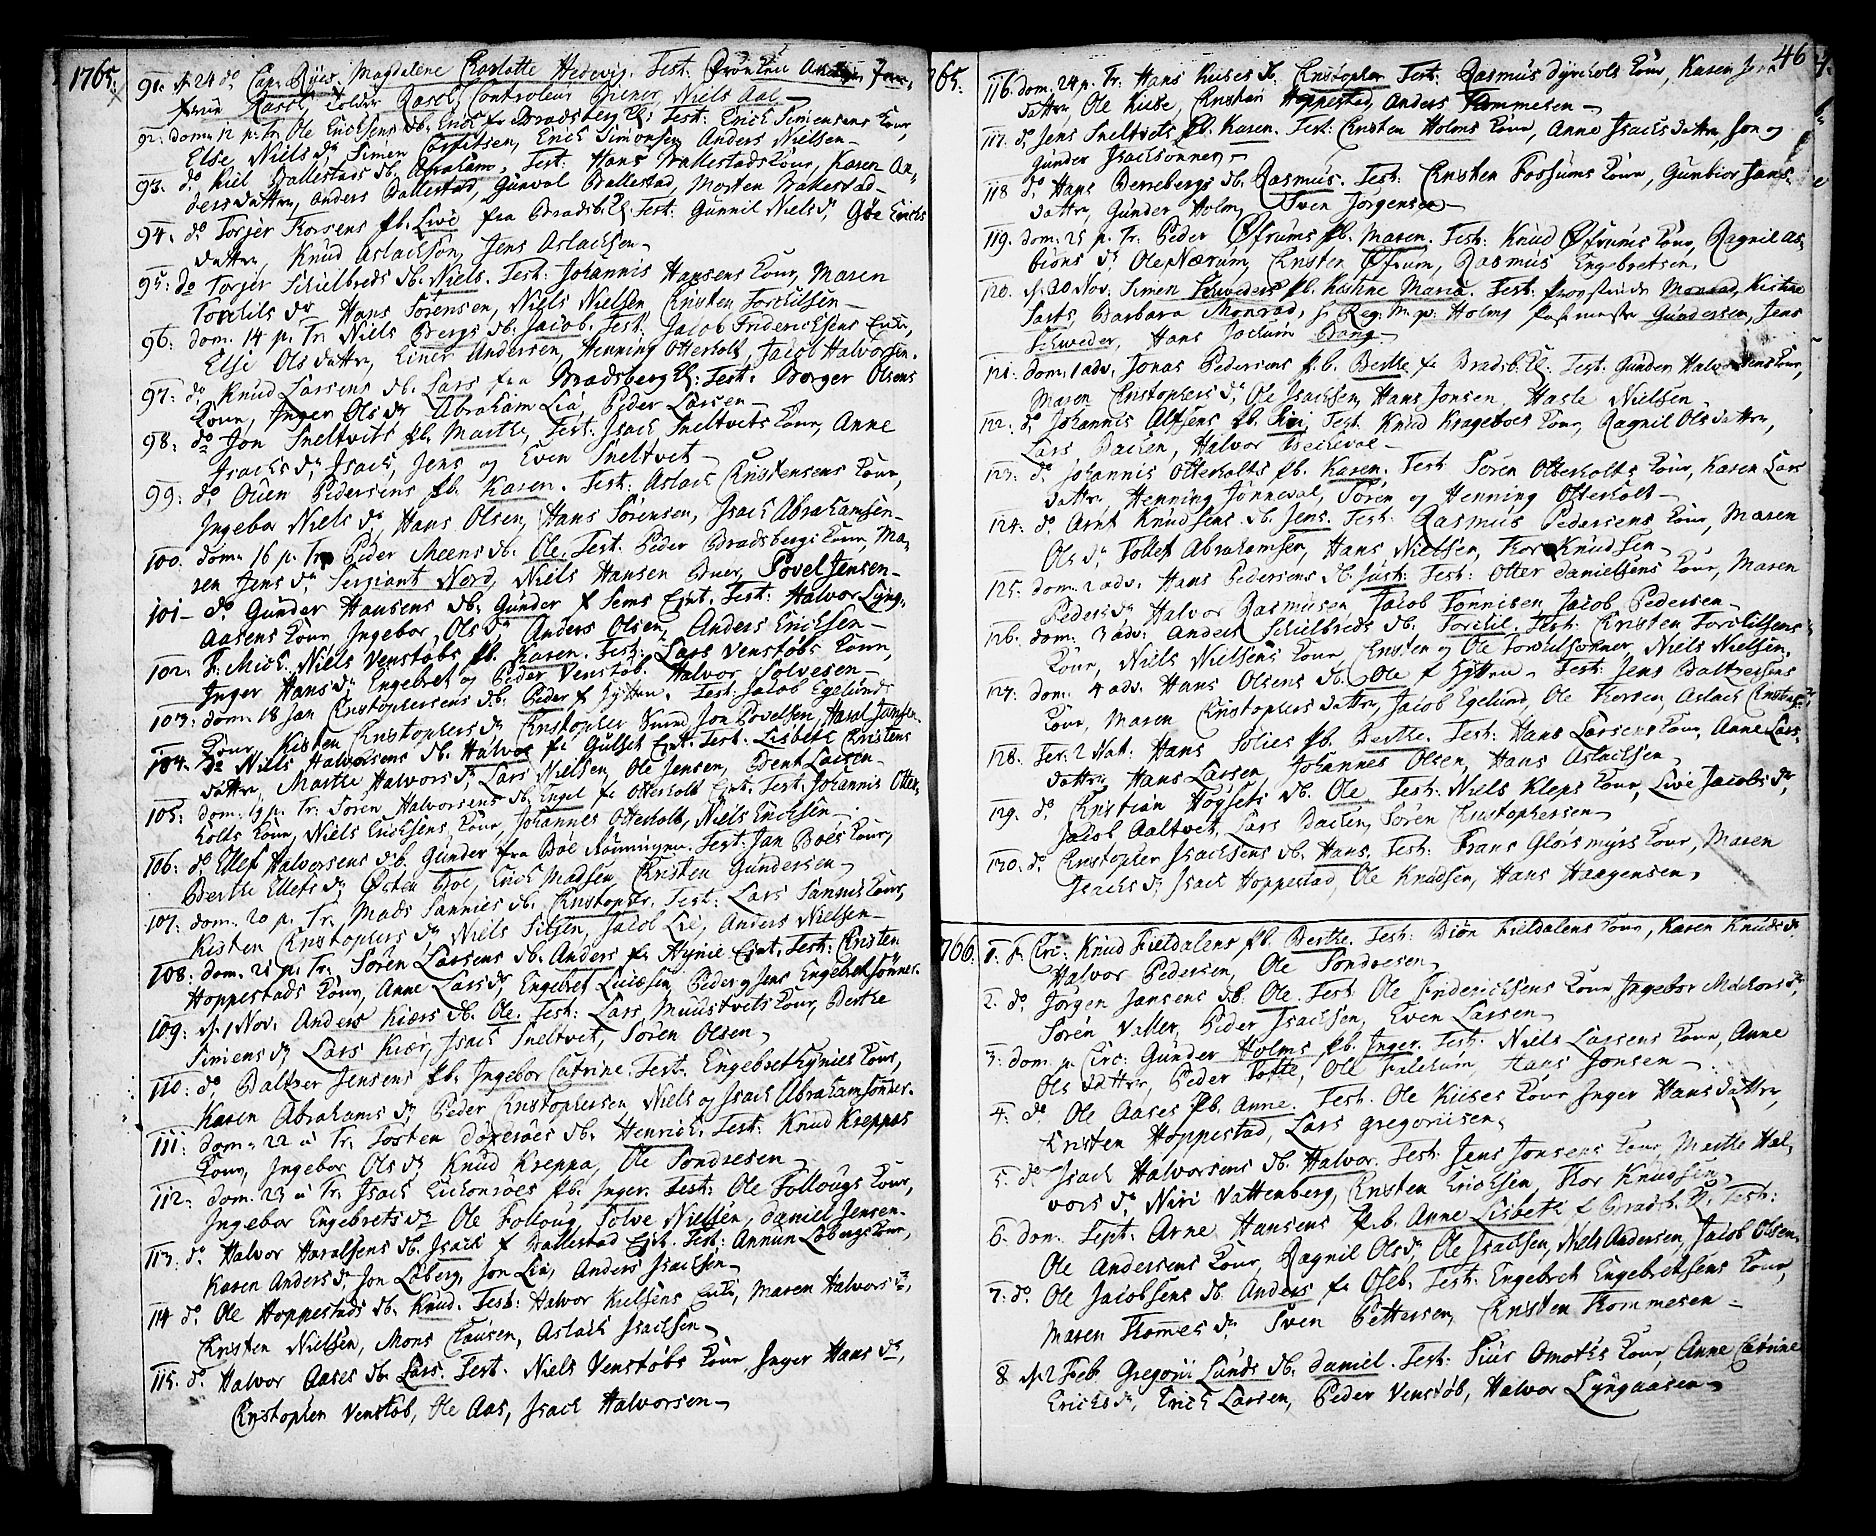 1765.
91. d. 24 do Cap: Ryes Magdalene Charlotte Hedevig. Test: Frönken
Rasch, Controleur Niels Aal
92. dom: 12 p. Tr. Ole Erichsens db. Erich fr Bradsberg Test: Erich Simensens Kone,
Else Niels dr Simen Erich Simonsen Anders Nielsen
93. do Kiel Ballestads db. Abraham. Test: Hans Ballestads Kone, Karen An-
ders dattr, Anders Ballestad, Gunval Ballestad, Morten Ballestad
94. do Torjer Korsens pb. Live fra Bradsb. Test: Gunnil Niels dr, Göe Erichs
dattr, Knud Aslachsön, Jens Aslachsen
95. do Torjer Schielbreds db. Niels. Test: Johannis Hansens Kone, Maren
Torchils dr Hans Sörensen, Niels Nielsen Christen Torchilsen
96. dom. 14 p. Tr. Niels Bergs db. Jacob. Test: Jacob Friderichsens
Else Ols dattr, Einer Andersen, Henning Otterholt, Jacob Halvorsen.
97. do Knud Larsens db. Lars fra Bradsberg Test: Borger Olsens
Kone, Inger Ols dr Abraham Lia, Peder Larsen
98. do Jon Sneltvits pb. Marthe, Test: Isach Sneltvets Kone, Anne
Isachs dr Isach, Jens og Even Sneltvet
99. do Ouen Pedersens pb. Karen. Test: Aslach Christensens Kone,
Ingebor Niels dr, Hans Olsen, Hans Sörensen, Isach Abrahamsen
100. dom. 16 p. Tr. Peder Meens db. Ole. Test: Peder Bradsbergs Kone, Ma-
ren Jens dr Sergiant Nord, Niels Hansen Buer, Povel Jensen
101 do Gunder Hansens db. Gunder f Sems Test: Halvor Lyng-
aasens Kone, Ingebor Ols dr Anders Olsen, Anders Erichsen
102. Mich. Niels Venstöbs pb. Karen. Test: Lars Venstöbs Kone,
Inger Hans dr Engebret og Peder Venstöb, Halvor Solvesen
103. dom. 18 Jan Christophersens db. Peder f Test: Jacob Egelunds
Kone, Kisten Christophers dr Christopher Jon Povelsen,
104. do Niels Halvorsens db. Halvor fr Gulset Test: Lisbeth Christens
dattr, Marthe Halvors dr, Lars Nielsen, Ole Jensen, Bent Larsen
105. dom. 19 p. Tr. Sören Halvorsens db. Engel fr Otterholt Test: Johannis Otter-
holts Kone, Niels Erichsens Kone, Johannes Otterholt, Niels Erichsen
106. do Ellef Halvorsens db. Gunder fra Böe Test: Jan Böes Kone,
Berthe Ellefs dr Östen Böe, Erich Madsen Christen Gundersen
107. dom. 20 p. Tr. Mads Sannies db. Christopher. Test: Lars Sannies Kone,
Kisten Christophers dr Niels Jacob Lie, Anders Nielsen
108. dom. 21 p. Tr. Sören Larsens db. Anders fr Hynie Test: Christen
Hoppestads Kone, Anne Lars dr Engebret Peder og Jens Engebretsönner.
109. d. 1 Nov. Anders Kiærs db. Ole. Test: Lars Kone, Berthe
Simens dr Lars Kiær, Isach Sneltvet, Sören Olsen
110. do Baltzer Jensens pb. Ingebor Catrine. Test: Engebret Hynies Kone,
Karen Abrahams dr Peder Christophersen, Niels og Isach Abrahamsönner.
111. dom. 22 a Tr. Tosten db. Henrich. Test: Knud Kreppas
Kone, Ingebor Ols dr Knud Kreppa, Ole Tondresen
112. dom. 23 a Tr. Isach pb. Inger. Test: Ole Follougs Kone,
Ingebor Engebrets dr Ole Folloug, Solve Nielsen, Daniel Jensen
113. do Halvor Haralsens db. Isach f Ballestad Test: Annun Löbergs Kone,
Karen Anders dr Jon Löberg, Jon Lia, Anders Isachsen
114 do Ole Hoppestads db. Knud. Test: Halvor Kielsens Maren Halvors dr,
Christen Nielsen, Mons Clausen, Aslach Isachsen
115. do Halvor Aases db. Lars. Test. Niels Venstöbs Kone Inger Hans dr,
Christopher Venstöb, Ole Aas, Isach Halvorsen
46
765.
116. dom. 24 p. Tr. Hans Kises db. Christopher Test: Rasmus Dyrchols Kone, Karen
dattr, Ole Kise, Christen Hoppestad, Anders Thommesen
117. do Jens Sneltvets pb. Karen. Test: Christen Holms Kone, Anne Isachs dattr, Jon og
Gunder Isachsönner
118 do Hans Berrebergs db. Rasmus. Test: Christen Fossums Kone, Gunbior Jans-
dattr, Gunder Holm, Sven Jorgensen
119. dom. 25 p. Tr. Peder Öfrums pb. Maren. Test: Knud Öfrums Kone, Ragnil As-
bions dr Ole Nærum, Christen Öfrum, Rasmus Engebretsen.
120. d. 30 Nov. Simen Schweders pb. Kistine Maria. Test: Monrad, Kistine
Sarts, Barbara Monrad, Holms Gundersen, Jens
Schweder, Hans Jochum Bang
121. dom. 1 adv. Jonas Pedersens pb. Berthe fr Bradsb. Test: Gunder Halvorsens Kone,
Maren Christophers dr, Ole Isachsen, Hans Jonsen, Hasle Nielsen
122. do Johannis Alfsens pb. Siri, Test Knud Krageboes Kone, Ragnil Ols dattr,
Lars Bachen, Halvor
123. do Johannis Otterholts pb. Karen. Test Sören Otterholts Kone, Karen Lars
dattr, Henning Jönneval, Sören og Henning Otterholt
124. do Arnt Knudsens db. Jens. Test: Rasmus Pedersens Kone, Maren
Ols dr Tollef Abrahamsen, Hans Nielsen, Thor Knudsen
125. dom. 2 adv. Hans Pedersens db. Just. Test: Otter Danielsens Kone, Maren
Peders dr Halvor Rasmusen, Jacob Tonnisen, Jacob Pedersen
126. dom. 3 adv. Anders Schielbreds db. Torchil. Test: Christen Torchilsens
Kone, Niels Nielsens Kone Christen og Ole Torchilsönner, Niels Nielsen.
127. dom. 4 adv. Hans Olsens db. Ole f Test: Jens Baltzersens
Kone, Maren Christophers dattr, Jacob Egelund, Ole Thorsen, Aslach Christensen
128. Fer. 2 Nat. Hans Solies pb. Berthe. Test: Hans Larsens Kone, Anne Lars-
dattr, Hans Larsen, Johannes Olsen, Hans Aslachsen
129. do Christian Högsets db. Ole. Test: Niels Kleps Kone, Live Jacobs dr,
Jacob Aaltvet, Lars Bachen, Sören Christophersen
130. do Christopher Isachsens db. Hans. Test: Frans Glörsmyrs Kone, Maren
Isachs dr Isach Hoppestad, Ole Knudsen, Hans Haagensen
766.
1. f. Circ. Knud Fieldalens pb. Berthe. Test: Biön Fieldalens Kone, Karen Knuds dr
Halvor Pedersen, Ole Tondresen
2. do Jörgen Jansens db. Ole. Test Ole Friderichsens Kone Ingebor Melchors dr,
Sören Valler, Peder Isachsen, Even Larsen
3. dom. p. Circ: Gunder Holms pb. Inger. Test: Niels Larsens Kone, Anne
Ols dattr, Peder Tofte, Ole Falchum, Hans Jonsen
4. do Ole Aases pb. Anne. Test: Ole Kises Kone Inger Hans dattr,
Christen Hoppestad, Lars Gregoriisen
5. do Isach Halvorsens db. Halvor. Test: Jens Jonsens Kone, Marthe Hal-
vors dr Niri Vattenberg, Christen Erichsen, Thor Knudsen
6. dom. Sept: Arne Hansens pb. Anne Lisbeth f Bradsb. Test:
Ole Andersens Kone, Ragnil Ols dr, Ole Isachsen, Niels Andersen, Jacob Olsen.
7. do Ole Jacobsens db. Anders fr Oseb. Test: Engebret Engebretsens Kone,
Maren Thommes dr Sven Pettersen, Christen Thommesen
8 d. 2 Feb. Gregorii Lunds db. Daniel. Test: Siur Omoths Kone, Anne Catrine
Erichs dr, Erich Larsen, Peder Venstöb, Halvor Lyngaasen